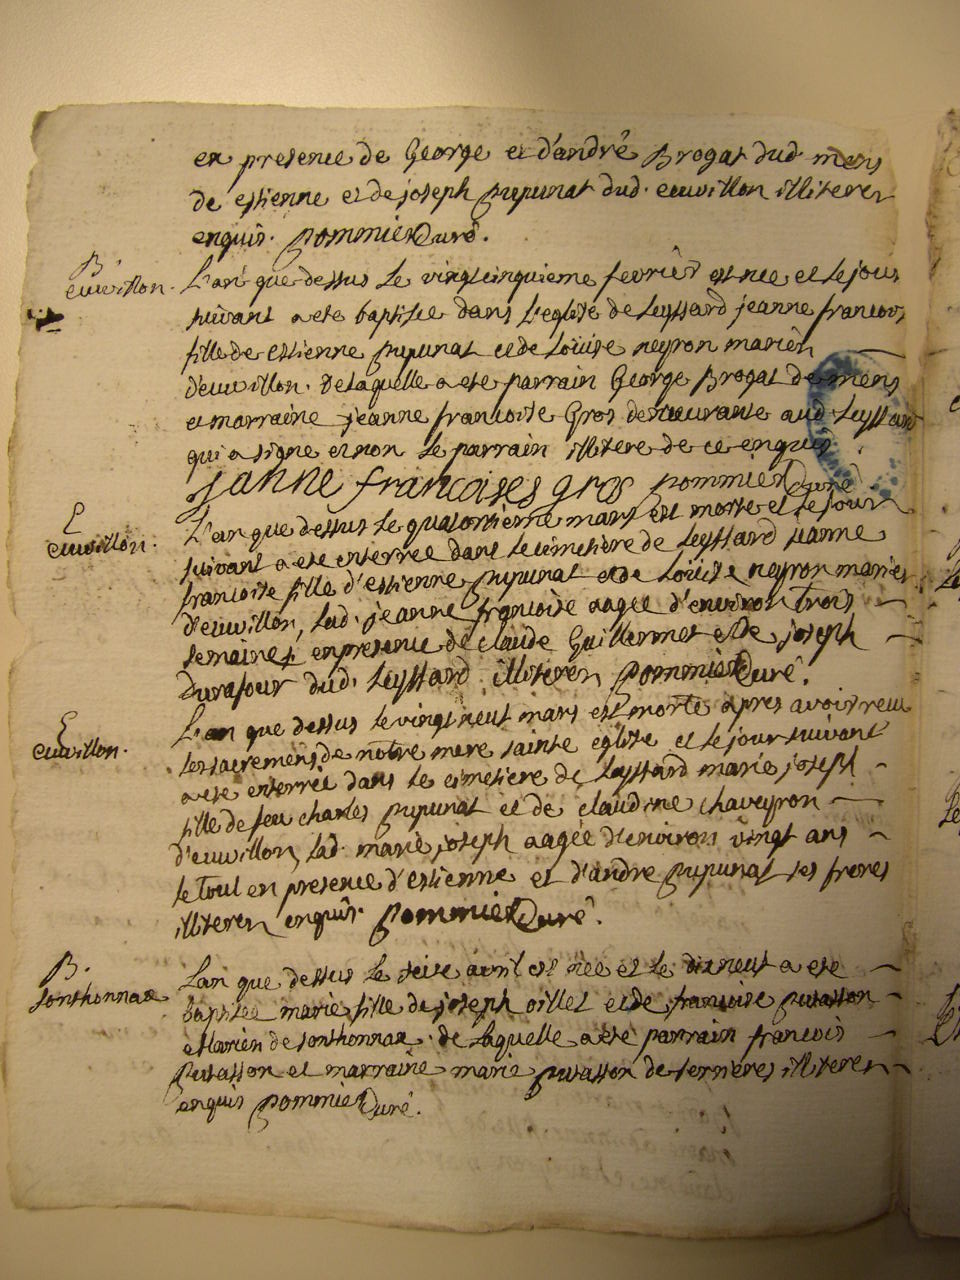 en presence de George et d'andré Brogat dud mens
de estienne et de joseph pupunat dud. euuvillon illiteres
enquis. pommier Curé.
B
euuvillon.
L'an que dessus le vingtcinquieme fevrier est nee et le jour
suivant a ete baptisée dans l'eglise de Leyssard jeanne francoise
fille de estienne pupunat et de Louise neyron mariés
d'euuvillon. de laquelle a ete parrain George Brogat de mens
et marraine jeanne francoise Gros demeurante aud Leyssard
qui a signe et non le parrain illitere de ce enquis
janne francoises gros pommier Curé
E
euuvillon.
L'an que dessus le quatorsieme mars est morte et le jour
suivant a ete enterree dans le cimetiere de Leyssard jeanne
francoise fille d'estienne pupunat et de Louise neyron mariés
d'euuvillon, lad. jeanne francoise aagee d'environ trois
semaines en presence de claude Guillermet et de joseph
Durafour dud. Leyssard illiteres pommier Curé.
E
euuvillon.
L'an que dessus le vingt neuf mars est morte apres avoir receu
les sacremens de notre mere sainte eglise et le jour suivant
a ete enterrée dans le cimetiere de Leyssard marie joseph
fille de feu charles pupunat et de claudine chaveyron
d'euuvillon, lad. marie joseph aagée d'environ vingt ans
le tout en presence d'estienne et d'andre pupunat ses freres
illiteres enquis. pommier Curé.
B.
sonthonnax
L'an que dessus le seise avril est née et le dixneuf a ete
baptisée marie fille de joseph oillet et de francoise putasson
mariés de sonthonnax. de laquelle a ete parrain francois
putasson et marraine marie putasson de serrieres illiteres
enquis pommier Curé.